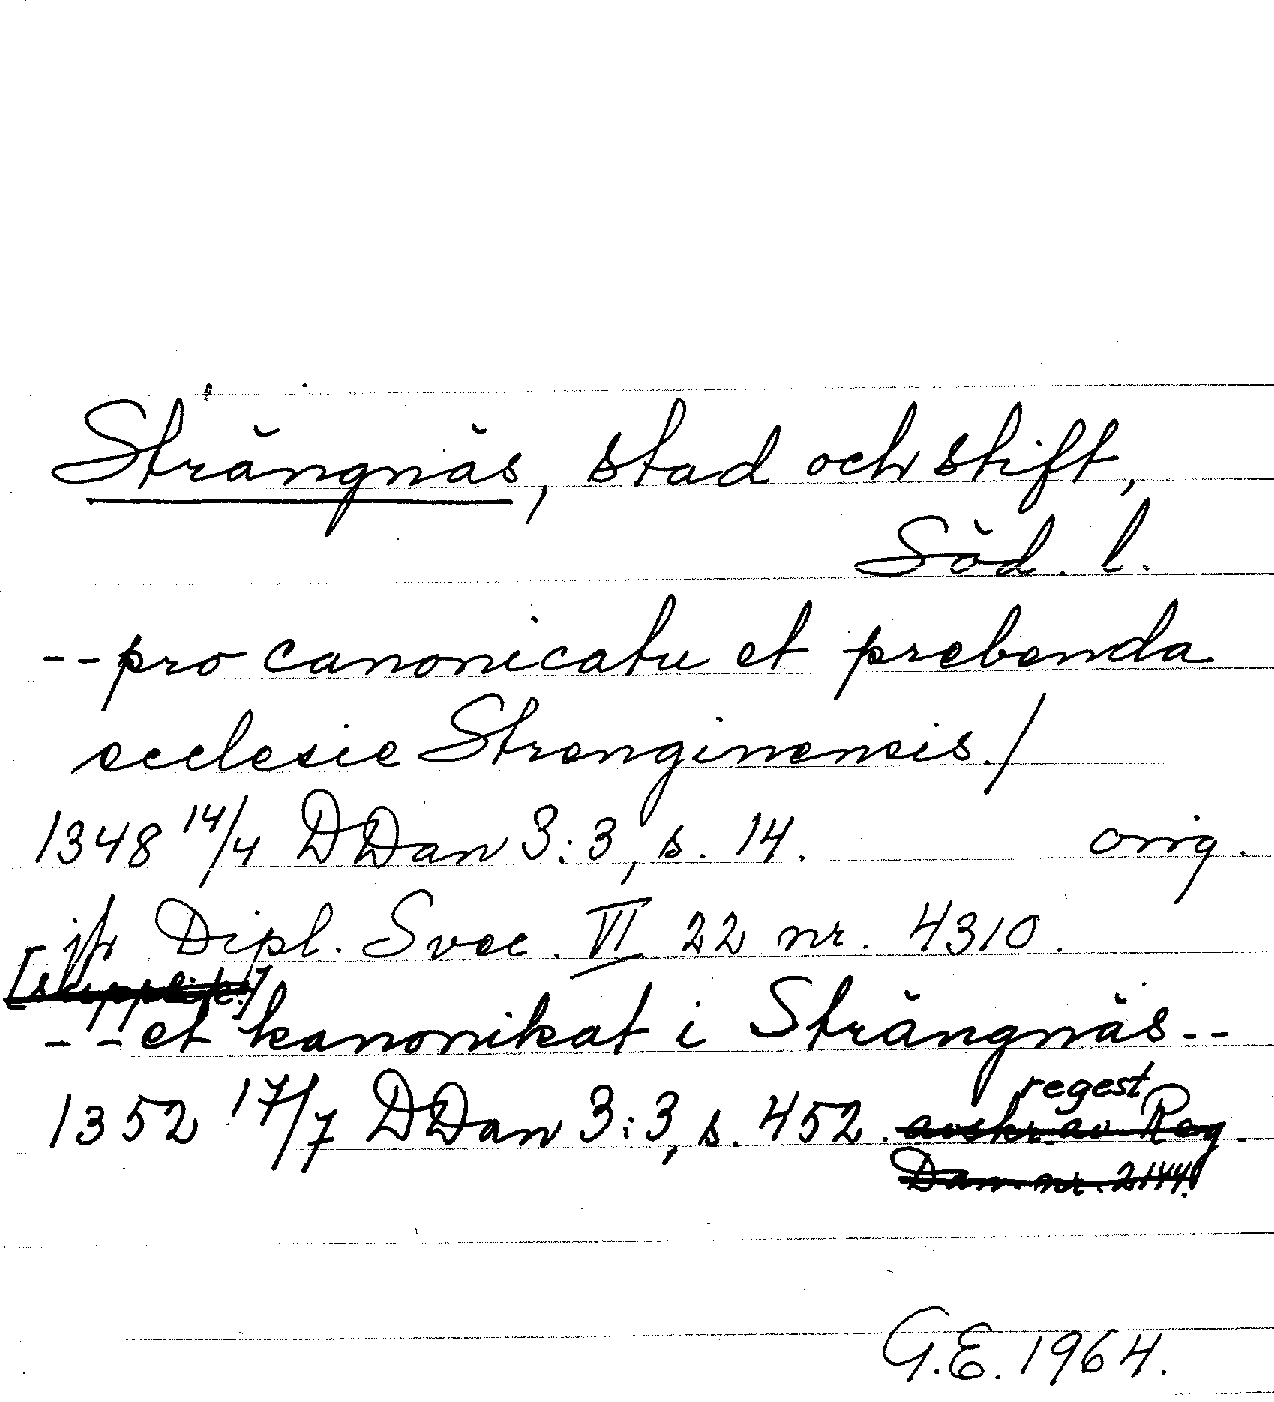 Strängnäs, stad och stift,
Söd. l.
-- pro canonicatu et prebenda
ecclesie Strenginensis./
1348 14/4 DDan 3:3, s. 14. orig.
jfr Dipl. Svec. VI 22 nr. 4310.
[supplik.]
-- et kanonikat i Strängnäs --
regest
1352 17/7 DDan 3:3, s. 452. avskr. av Reg.
Dan. nr. 2144.
G.E. 1964.